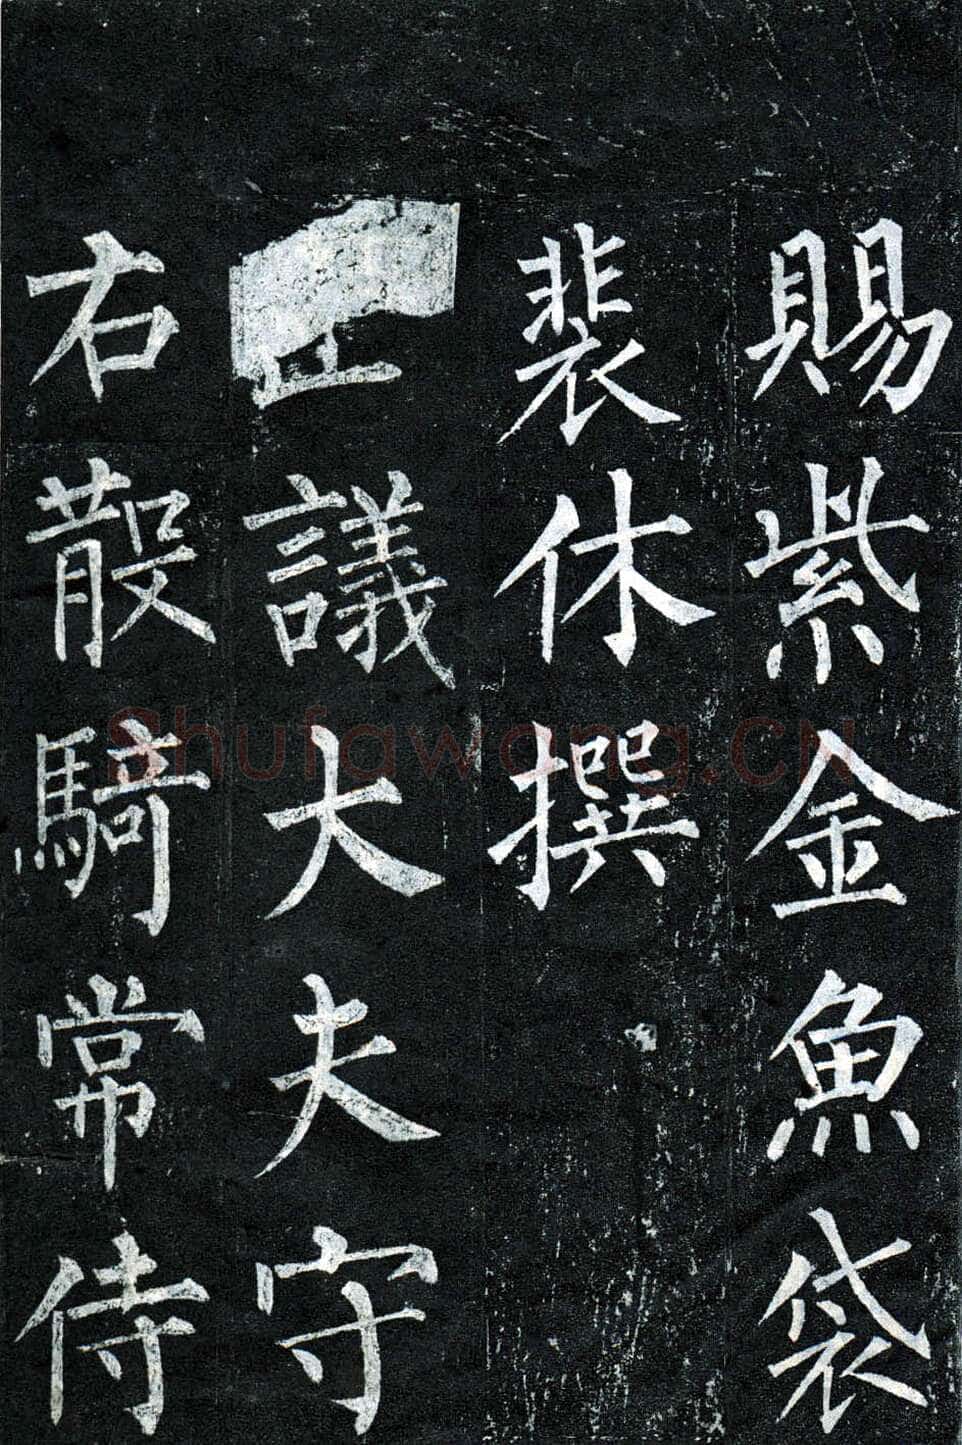 賜紫金魚袋
裴休撰
正議大夫守
右散騎常侍
Shufawang.CN